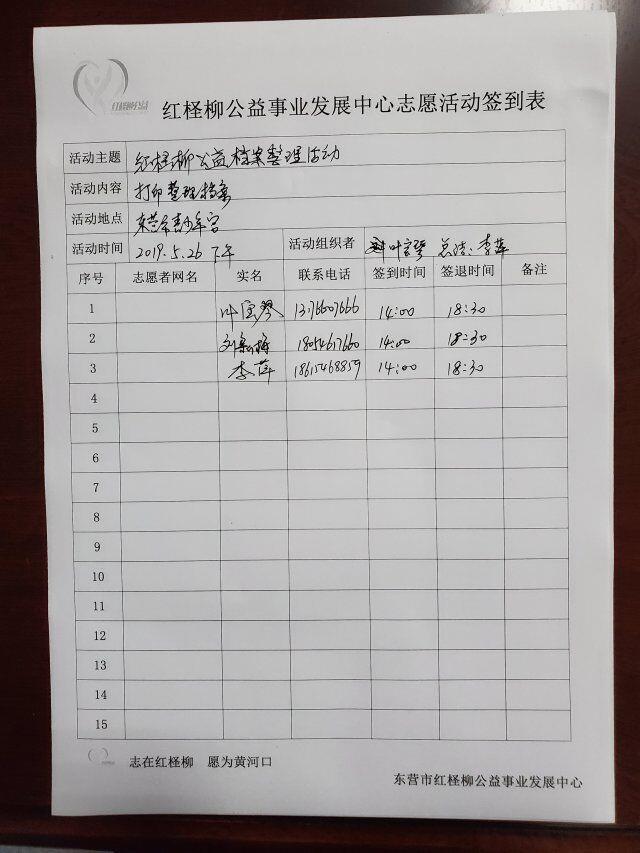 红柽柳公益
红柽柳公益事业发展中心志愿活动签到表
活动主题 红柽柳公益档案整理活动
活动内容 打印整理档案
活动地点 东营市青少年宫
活动时间 2019.5.26 下午 活动组织者 叶宝琴 总结:李萍
序号 志愿者网名 实名 联系电话 签到时间 签退时间 备注
1 叶宝琴 13176607666 14:00 18:30
2 刘 梅 18054617660 14:00 18:30
3 李萍 18615468859 14:00 18:30
4
5
6
7
8
9
10
11
12
13
14
15
志在红柽柳 愿为黄河口
东营市红柽柳公益事业发展中心